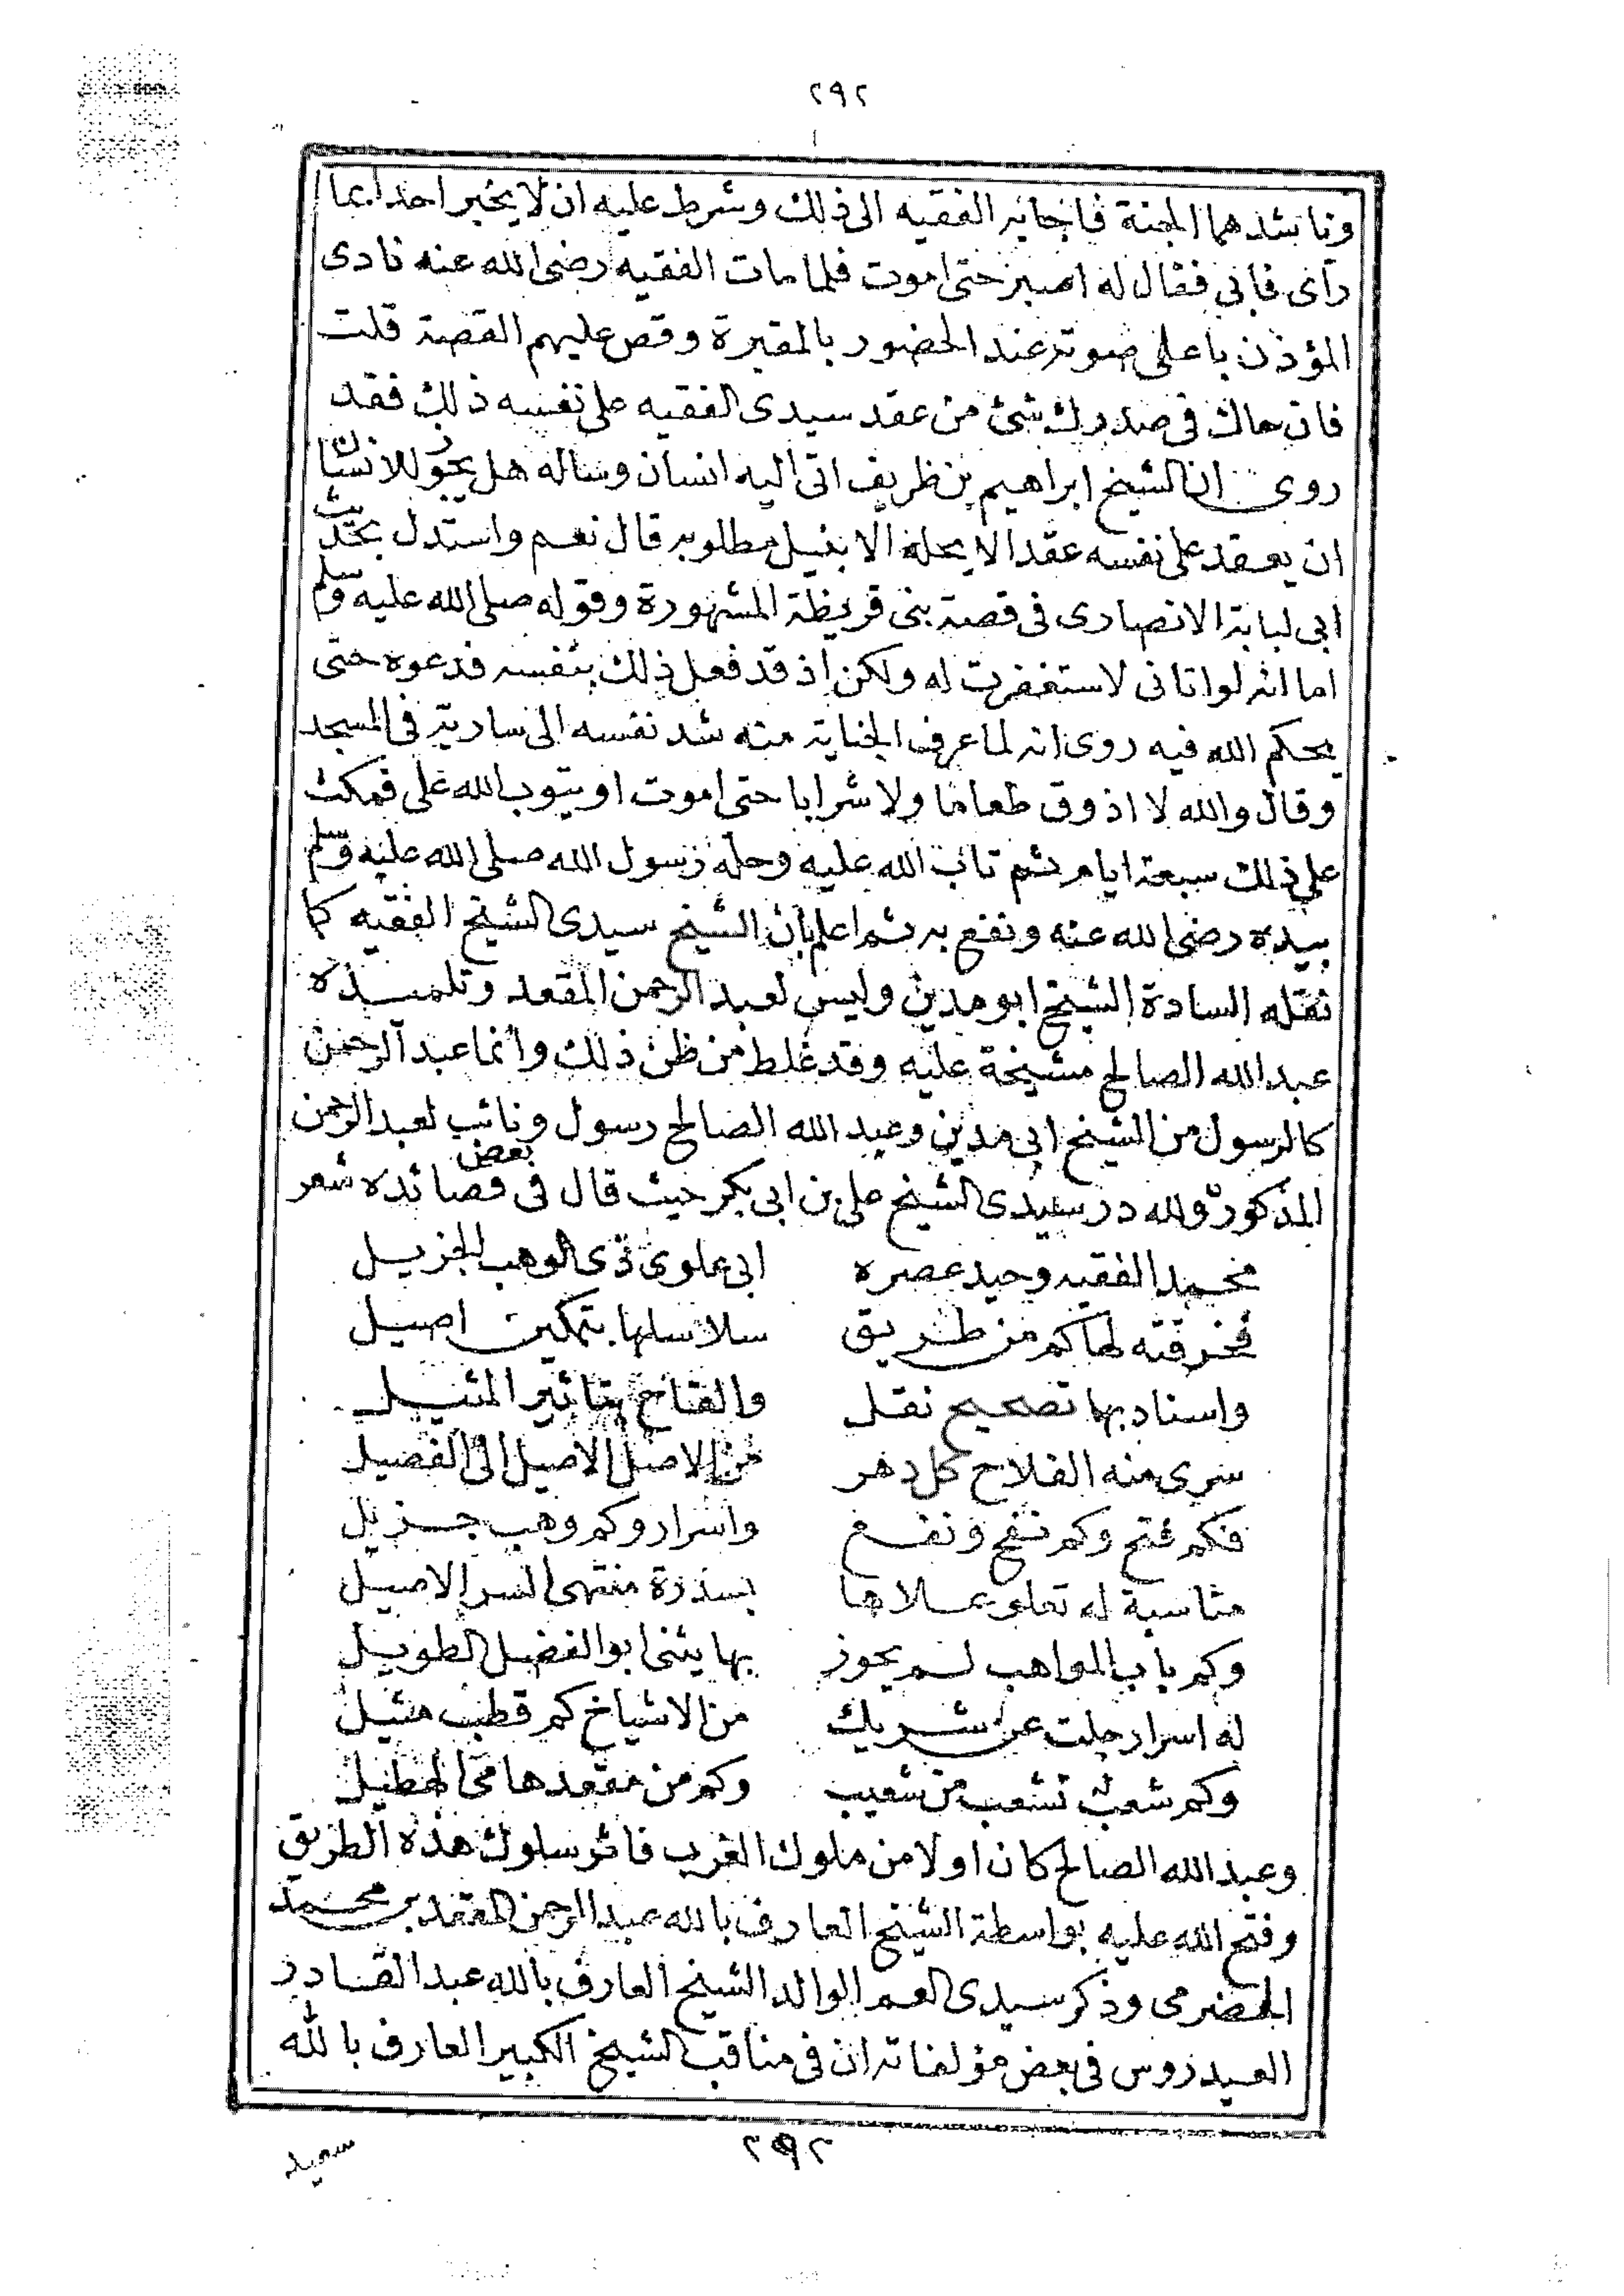 ٢٩٢
وناشدهما الجنة فاجابه الفقيه الى ذلك وشرط عليه ان لا يخبر احدا بما
رآى فابى فقال له اصبر حتى اموت فلما مات الفقيه رضى الله عنه نادى
المؤذن باعلى صوته عند الحضور بالمقبرة وقص عليهم القصة قلت
فان حاك فى صدرك شئ من عقد سيدى الفقيه على نفسه ذلك فقد
روى ان الشيخ ابراهيم بن ظريف اتى اليه انسان وساله هل يجوز للانسان
ان يعقد على نفسه عقدا لا يحله الا بنيل مطلوبه قال نعم واستدل بحديث
ابى لبابة الانصارى فى قصة بنى قريظة المشهورة وقوله صلى الله عليه وسلم
اما انه لو اتانى لاستغفرت له ولكن اذ قد فعل ذلك بنفسه فدعوه حتى
يحكم الله فيه روى انه لما عرف الجناية منه شد نفسه الى سارية فى المسجد
وقال والله لا اذوق طعاما ولا شرابا حتى اموت او يتوب الله على فمكث
على ذلك سبعة ايام ثم تاب الله عليه وحله رسول الله صلى الله عليه وسلم
بيده رضى الله عنه ونفع به ثم اعلم بان الشيخ سيدى الشيخ الفقيه كما
نقله السادة الشيخ ابو مدين وليس لعبد الرحمن المقعد وتلميذه
عبد الله الصالح مشيخة عليه وقد غلط من ظن ذلك وانما عبد الرحمن
كالرسول من الشيخ ابى مدين وعبد الله الصالح رسول ونائب لعبد الرحمن
المذكور ولله در سيدى الشيخ على بن ابى بكر حيث قال فى بعض قصائده شعر
محمد الفقيه وحيد عصره ابى علوى ذى الوهب الجزيل
فخرقته لها كم من طريق سلاسلها بتمكين اصيل
واسناد بها تصحيح نقل والقاح بتاثير المنيل
سرى منه الفلاح كل دهر من الاصل الاصيل الى الفصيل
فكم فتح وكم نفح ونفع واسرار وكم وهب جزيل
مناسبة له تعلو علاها بسدرة منتهى السر الاصيل
وكم باب المواهب لم يحوز بها يثنى ابو الفضل الطويل
له اسرار جلت عن شريك من الاشياخ كم قطب مثيل
وكم شعب تشعب من شعيب وكم من مقعد هامى الهطيل
وعبد الله الصالح كان اولا من ملوك الغرب فاثر سلوك هذه الطريق
وفتح الله عليه بواسطة الشيخ العارف بالله عبد الرحمن المقعد بن محمد
الحضرمى وذكر سيدى العم الوالد الشيخ العارف بالله عبد القادر
العيدروس فى بعض مؤلفاته ان فى مناقب الشيخ الكبير العارف بالله
٢٩٢
سعيد